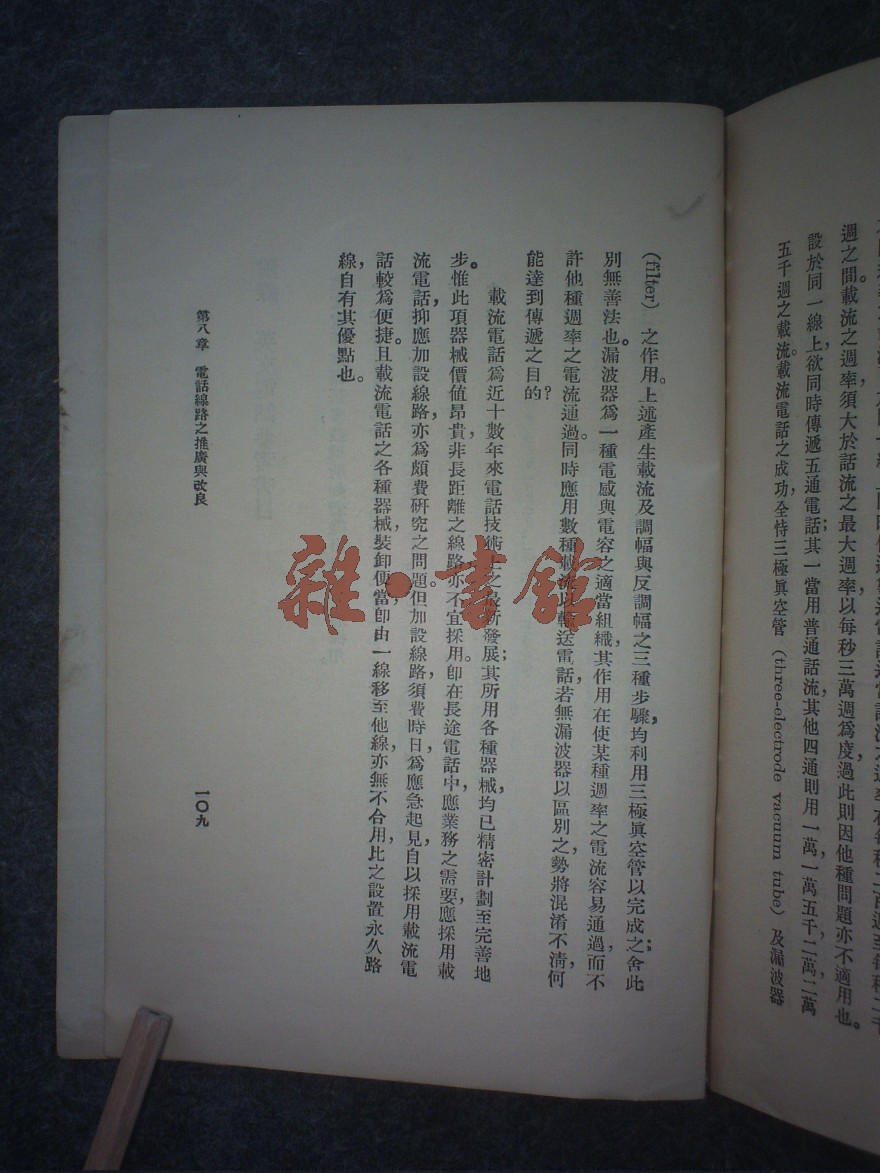 週之間。載流之週率須大於話流之最大週率以每秒三萬週爲度過此則因他種問題亦不適用也。
設於同一線上欲同時傳遞五通電話;其一當用普通話流,其他四通則用一萬,一萬五千,二萬,二萬
五千週之載流。載流電話之成功,全恃三極眞空管 (three-electrode vacuum tube) 及漏波器
(filter) 之作用。上述產生載流及調幅與反調幅之三種步驟,均利用三極眞空管以完成之;舍此
別無善法也。漏波器爲一種電感與電容之適當組織,其作用在使某種週率之電流容易通過,而不
許他種週率之電流通過。同時應用數種載流以輸送電話若無漏波器以區別之勢將混淆不淸,何
能達到傳遞之目的?
載流電話爲近十數年來電話技術上之最新發展;其所用各種器械,均已精密計劃至完善地
步。惟此項器械價値昂貴,非長距離之線路亦不宜採用。卽在長途電話中,應業務之需要,應採用載
流電話,抑應加設線路,亦爲頗費硏究之問題。但加設線路須費時日,爲應急起見,自以採用載流電
話較爲便捷。且載流電話之各種器械,裝卸便當,卽由一線移至他線,亦無不合用,比之設置永久路
線,自有其優點也。
第八章 電話線路之推廣與改良
一〇九
雜·書館